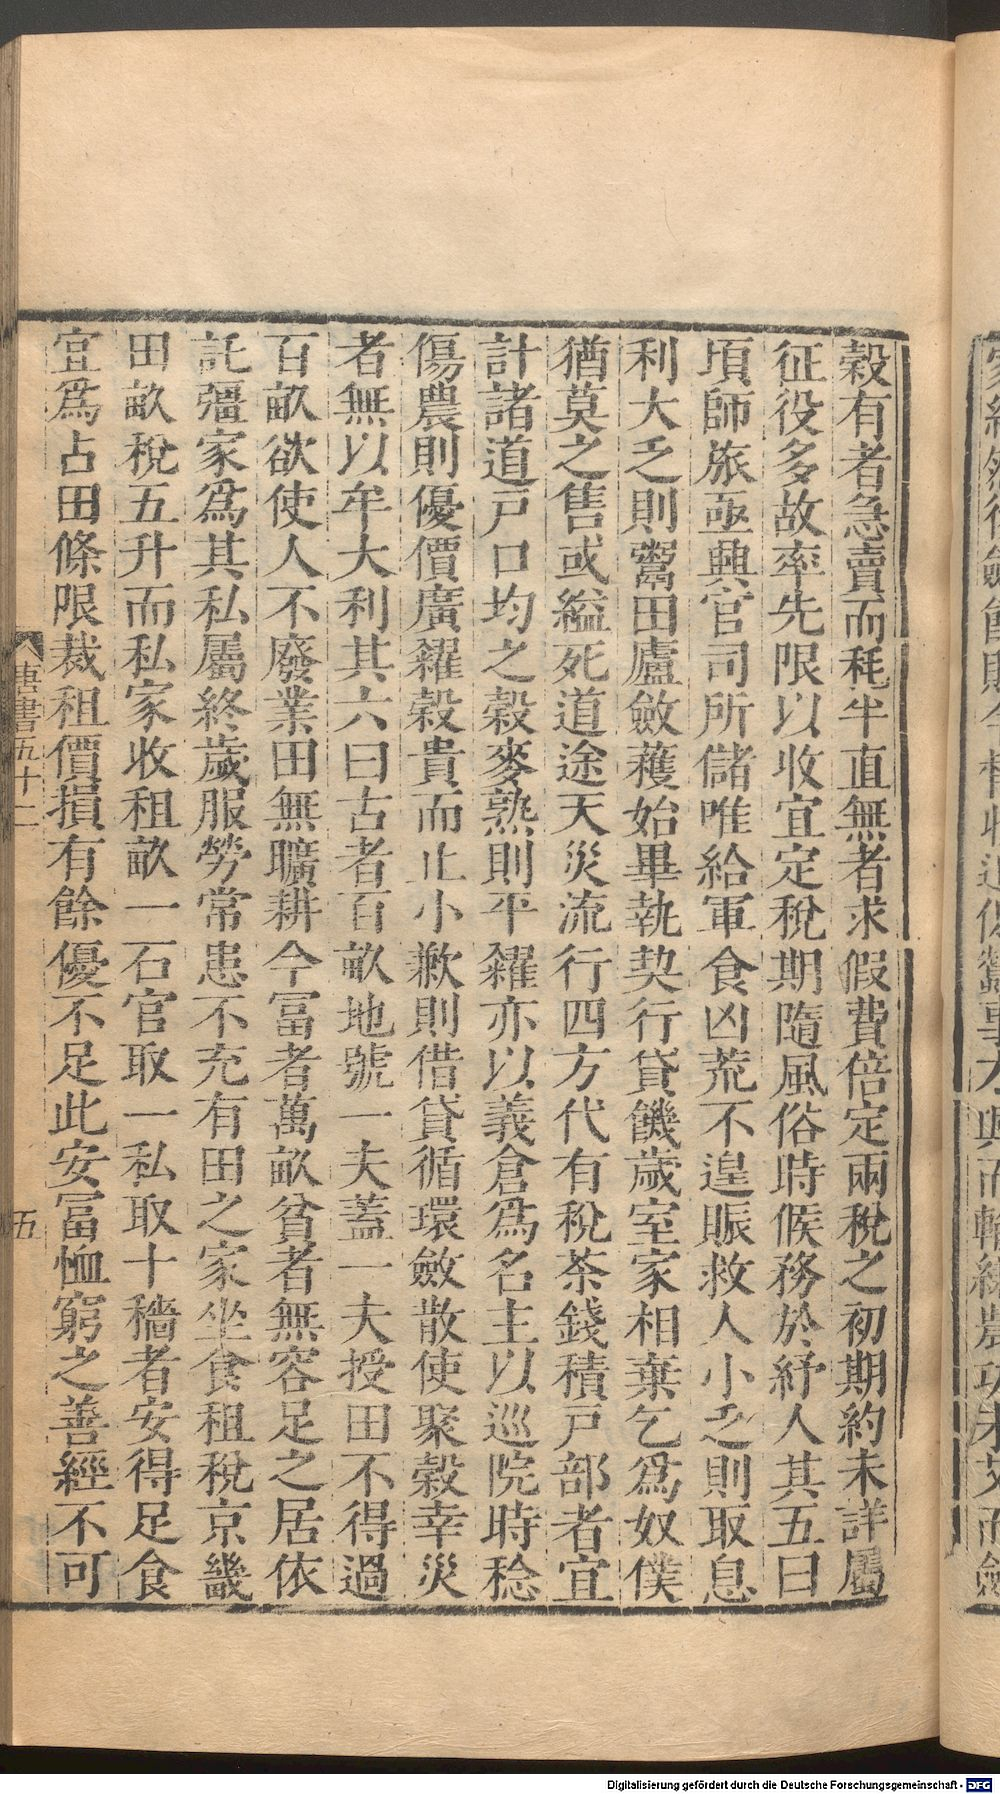 穀有者急賣而耗半直無者求假費倍定兩稅之初期約未詳屬
征役多故率先限以收宜定稅期隨風俗時候務於紓人其五曰
頃師旅亟興官司所儲唯給軍食凶荒不遑賑救人小乏則取息
利大乏則鬻田廬斂穫始畢執契行貸饑歲室家相棄乞爲奴僕
猶莫之售或縊死道途天災流行四方代有稅茶錢積戶部者宜
計諸道戶口均之穀麥熟則平糴亦以義倉爲名主以巡院時稔
傷農則優價廣糴穀貴而止小歉則借貸循環斂散使聚穀幸災
者無以牟大利其六曰古者百畝地號一夫蓋一夫授田不得過
百畝欲使人不廢業田無曠耕今冨者萬畝貧者無容足之居依
託彊家爲其私屬終歲服勞常患不充有田之家坐食租稅京畿
田畝稅五升而私家收租畝一石官取一私取十穡者安得足食
宜爲占田條限裁租價損有餘優不足此安冨恤窮之善經不可
唐書五十二
五
Digitalisierung gefördert durch die Deutsche Forschungsgemeinschaft - DFG